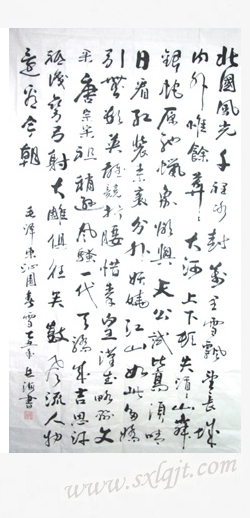 北國風光千里冰封萬里雪飄望長城
内外惟餘莽莽大河上下頓失滔滔山舞
銀蛇原馳蠟象欲與天公試比高須晴
日看紅裝素裹分外妖嬈江山如此多嬌
引無數英雄競折腰惜秦皇漢武略輸文
采唐宗宋祖稍遜風騷一代天驕成吉思汗
祗識彎弓射大雕俱往矣數風流人物
還看今朝
毛澤東沁園春雪
書
www.sxlqjt.com